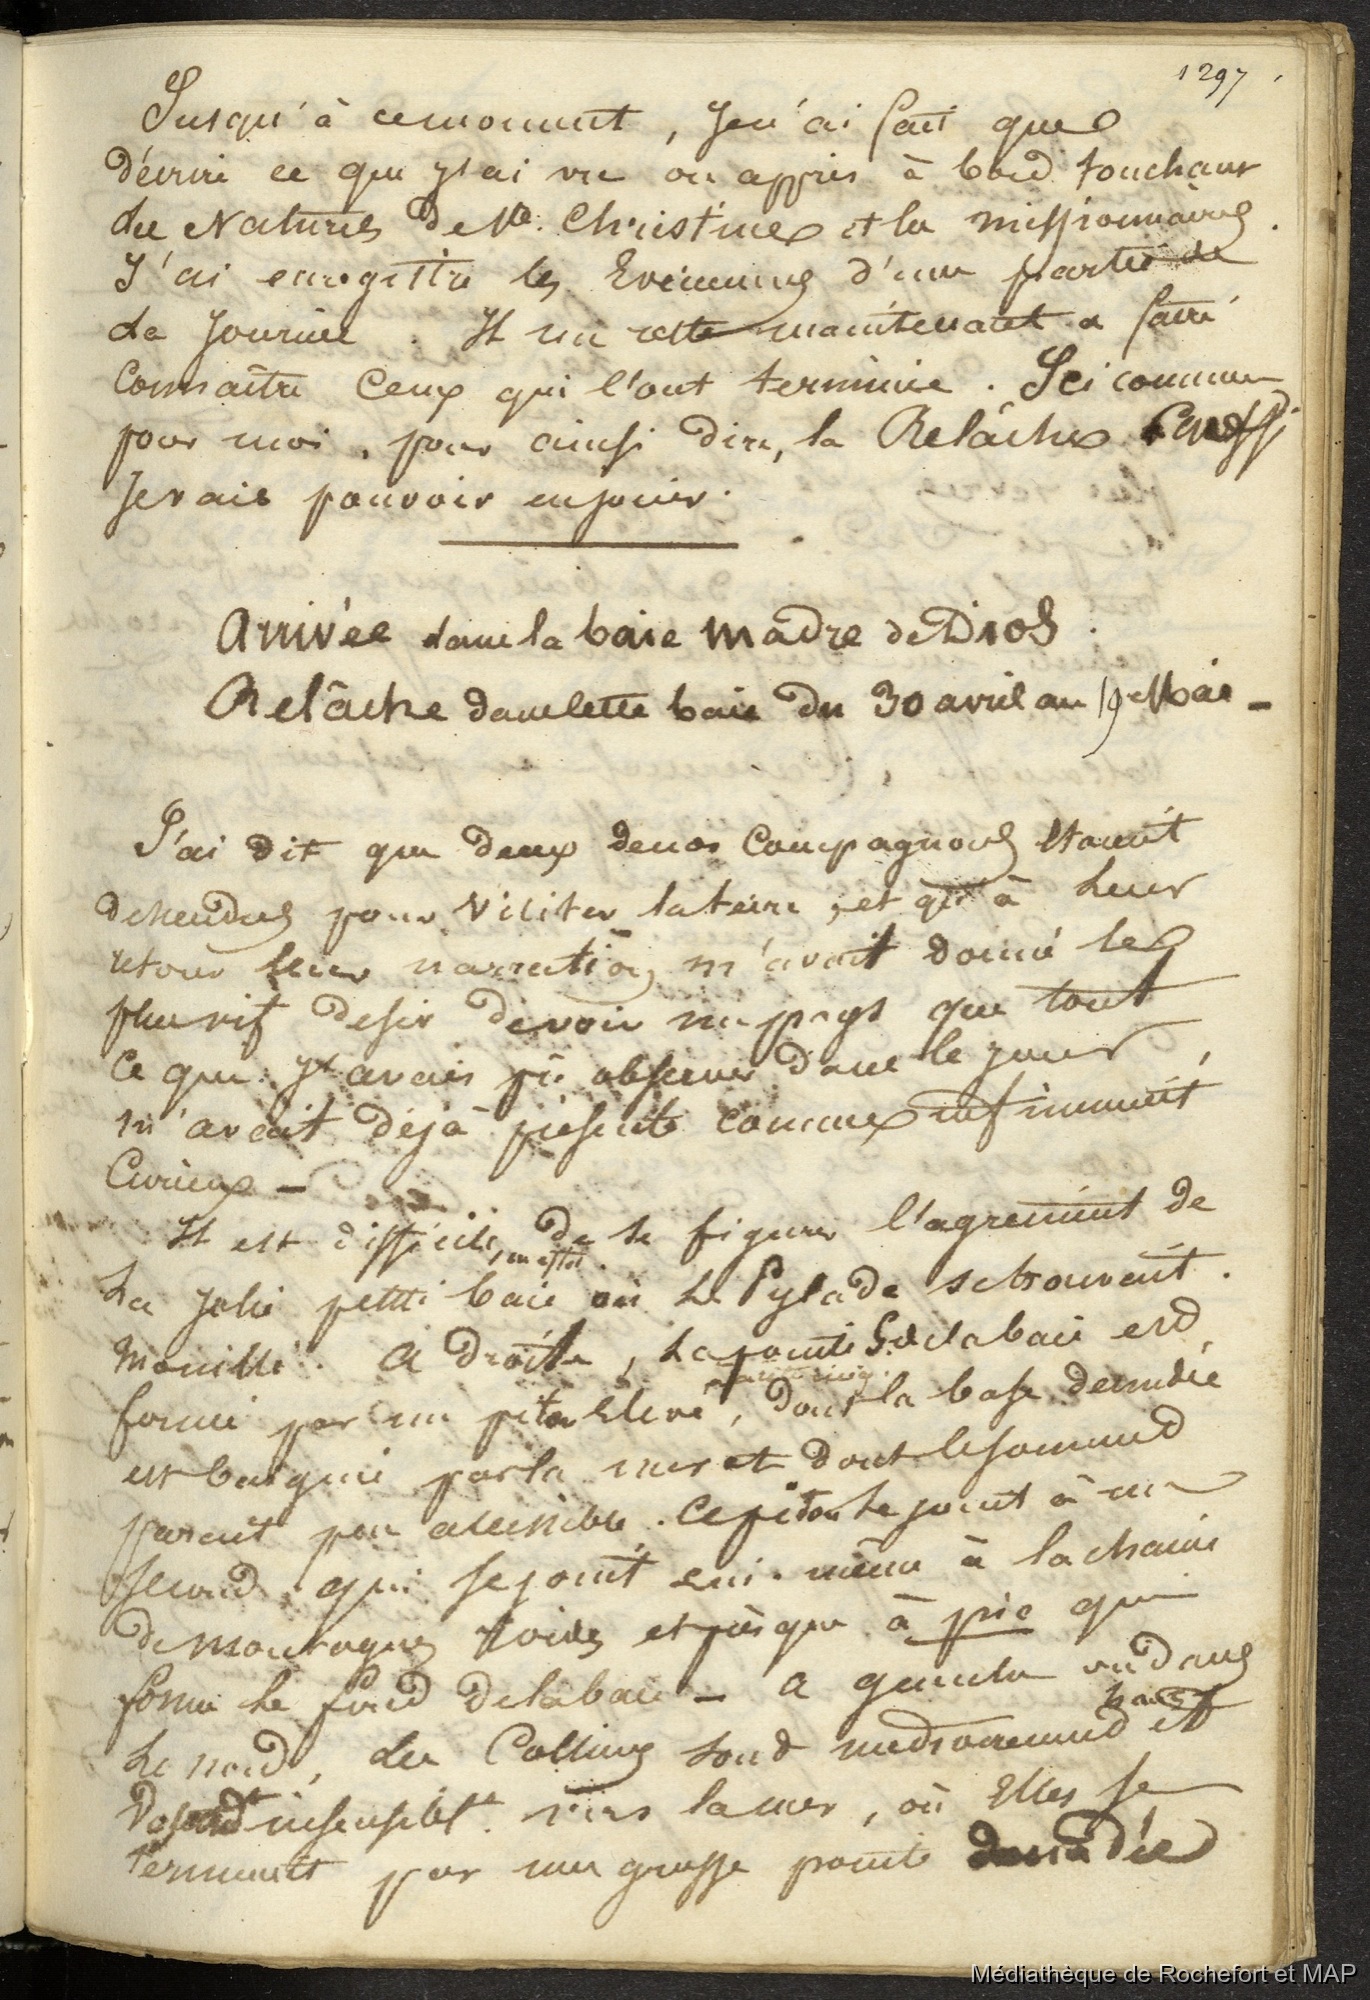 1297
Jusqu'à ce moment, Je n'ai fait que
décrire ce que J'ai vu ou appris à bord touchant
les Naturels de Ste. Christine et les missionnaires.
J'ai enregistré les Evénemens d'une partie de
la Journée. Il me reste maintenant à faire
Connaître Ceux qui l'ont terminée. Ici commence
pour moi, pour ainsi dire, la Relâche
Je vais pouvoir en jouir.
Arrivée dans la baie Madre de Dios.
Relâche dans cette baie du 30 avril au 19 Mai -
J'ai dit que deux de nos Compagnons étaient
descendus pour visiter la terre, et qu'à leur
retour leur narration m'avait donné le
plus vif desir de voir un pays que tout
Ce que J'avais pû observer dans le jour,
m'avait déjà présenté comme infiniment
Curieux -
Il est difficile, en effet de se figurer l'agrement de
La Jolie petite baie où Le Pylade se trouvait
Mouillé. A droite, La pointe S. de la baie est
formée par un piton Elevé, dont la base dénudée
est baignée par la mer et dont le sommet
parait peu accessible. Ce piton se joint à un
second, qui se joint lui-même à la chaine
de Montagnes Roides et présque à pic qui
forme le fond de la baie - A gauche ou dans
Le nord, les Collines sont mediocrement hautes et
insensiblt. vers la mer, où Elles se
terminent par une grosse pointe dénudée
Médiathèque de Rochefort et MAP